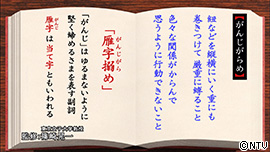 【がんじがらめ】
紐などを縦横にいく重にも
巻きつけて 厳重に縛ること
色々な関係がからんで
思うように行動できないこと
がんじがら
「雁字搦め」
「がんじ」は ゆるまないように
堅く締めるさまを表す副詞
がんじ
雁字は 当て字ともいわれる
©NTV